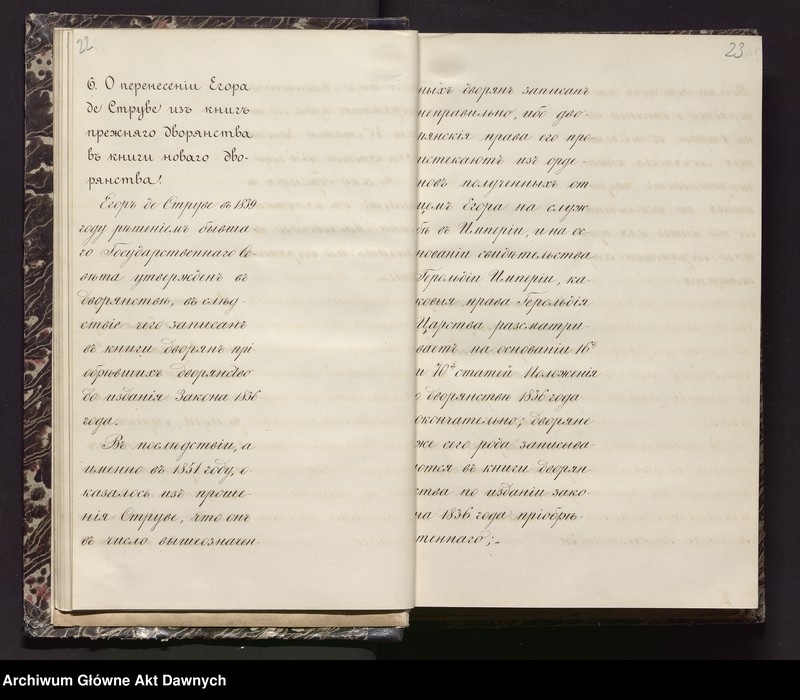 22
6. О перенесеніи Егора
де Струве изъ книгъ
прежняго дворянства
въ книги новаго дво-
рянства.
Егоръ де Струве въ 1839
году рѣшеніемъ бывша-
го Государственнаго Со-
вѣта утвержденъ въ
дворянствѣ, въ слѣд-
ствіе чего записанъ
въ книги дворянъ прі-
обрѣвшихъ дворянство
до изданія Закона 1836
года.
Въ послѣдствіи, а
именно въ 1851 году, о-
казалось изъ проше-
нія Струве, что онъ
въ число вышеозначен-
23
ныхъ дворянъ записанъ
неправильно, ибо дво-
рянскія права его про-
истекаютъ изъ орде-
новъ полученныхъ от-
цемъ Егора на служ-
бѣ въ Имперіи, и на ос-
нованіи свидѣтельства
Герольдіи Имперіи, ка-
ковыя права Герольдія
Царства разсматри-
ваетъ на основаніи 16й
и 76й статей Положенія
о дворянствѣ 1836 года
окончательно; дворяне
же сего рода записыва-
ются въ книги дворян-
ства по изданіи зако-
на 1836 года пріобрѣ-
теннаго;-
Archiwum Główne Akt Dawnych